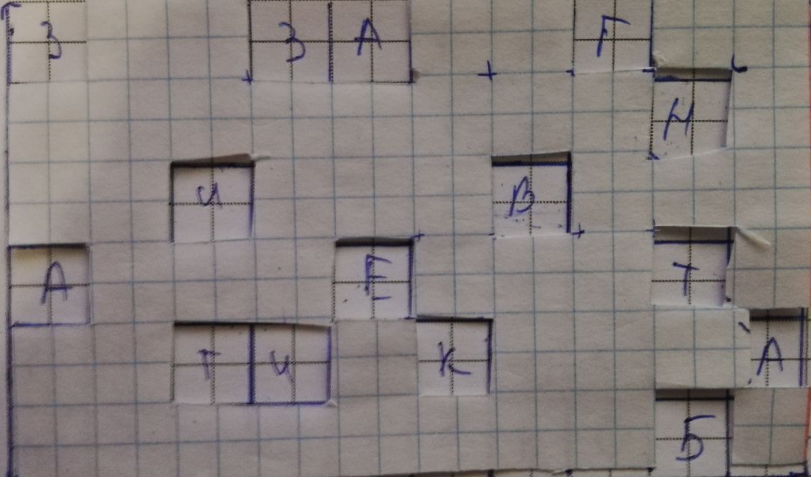 З З А Г
Н
И В
А Е Т
Т И К А
Б